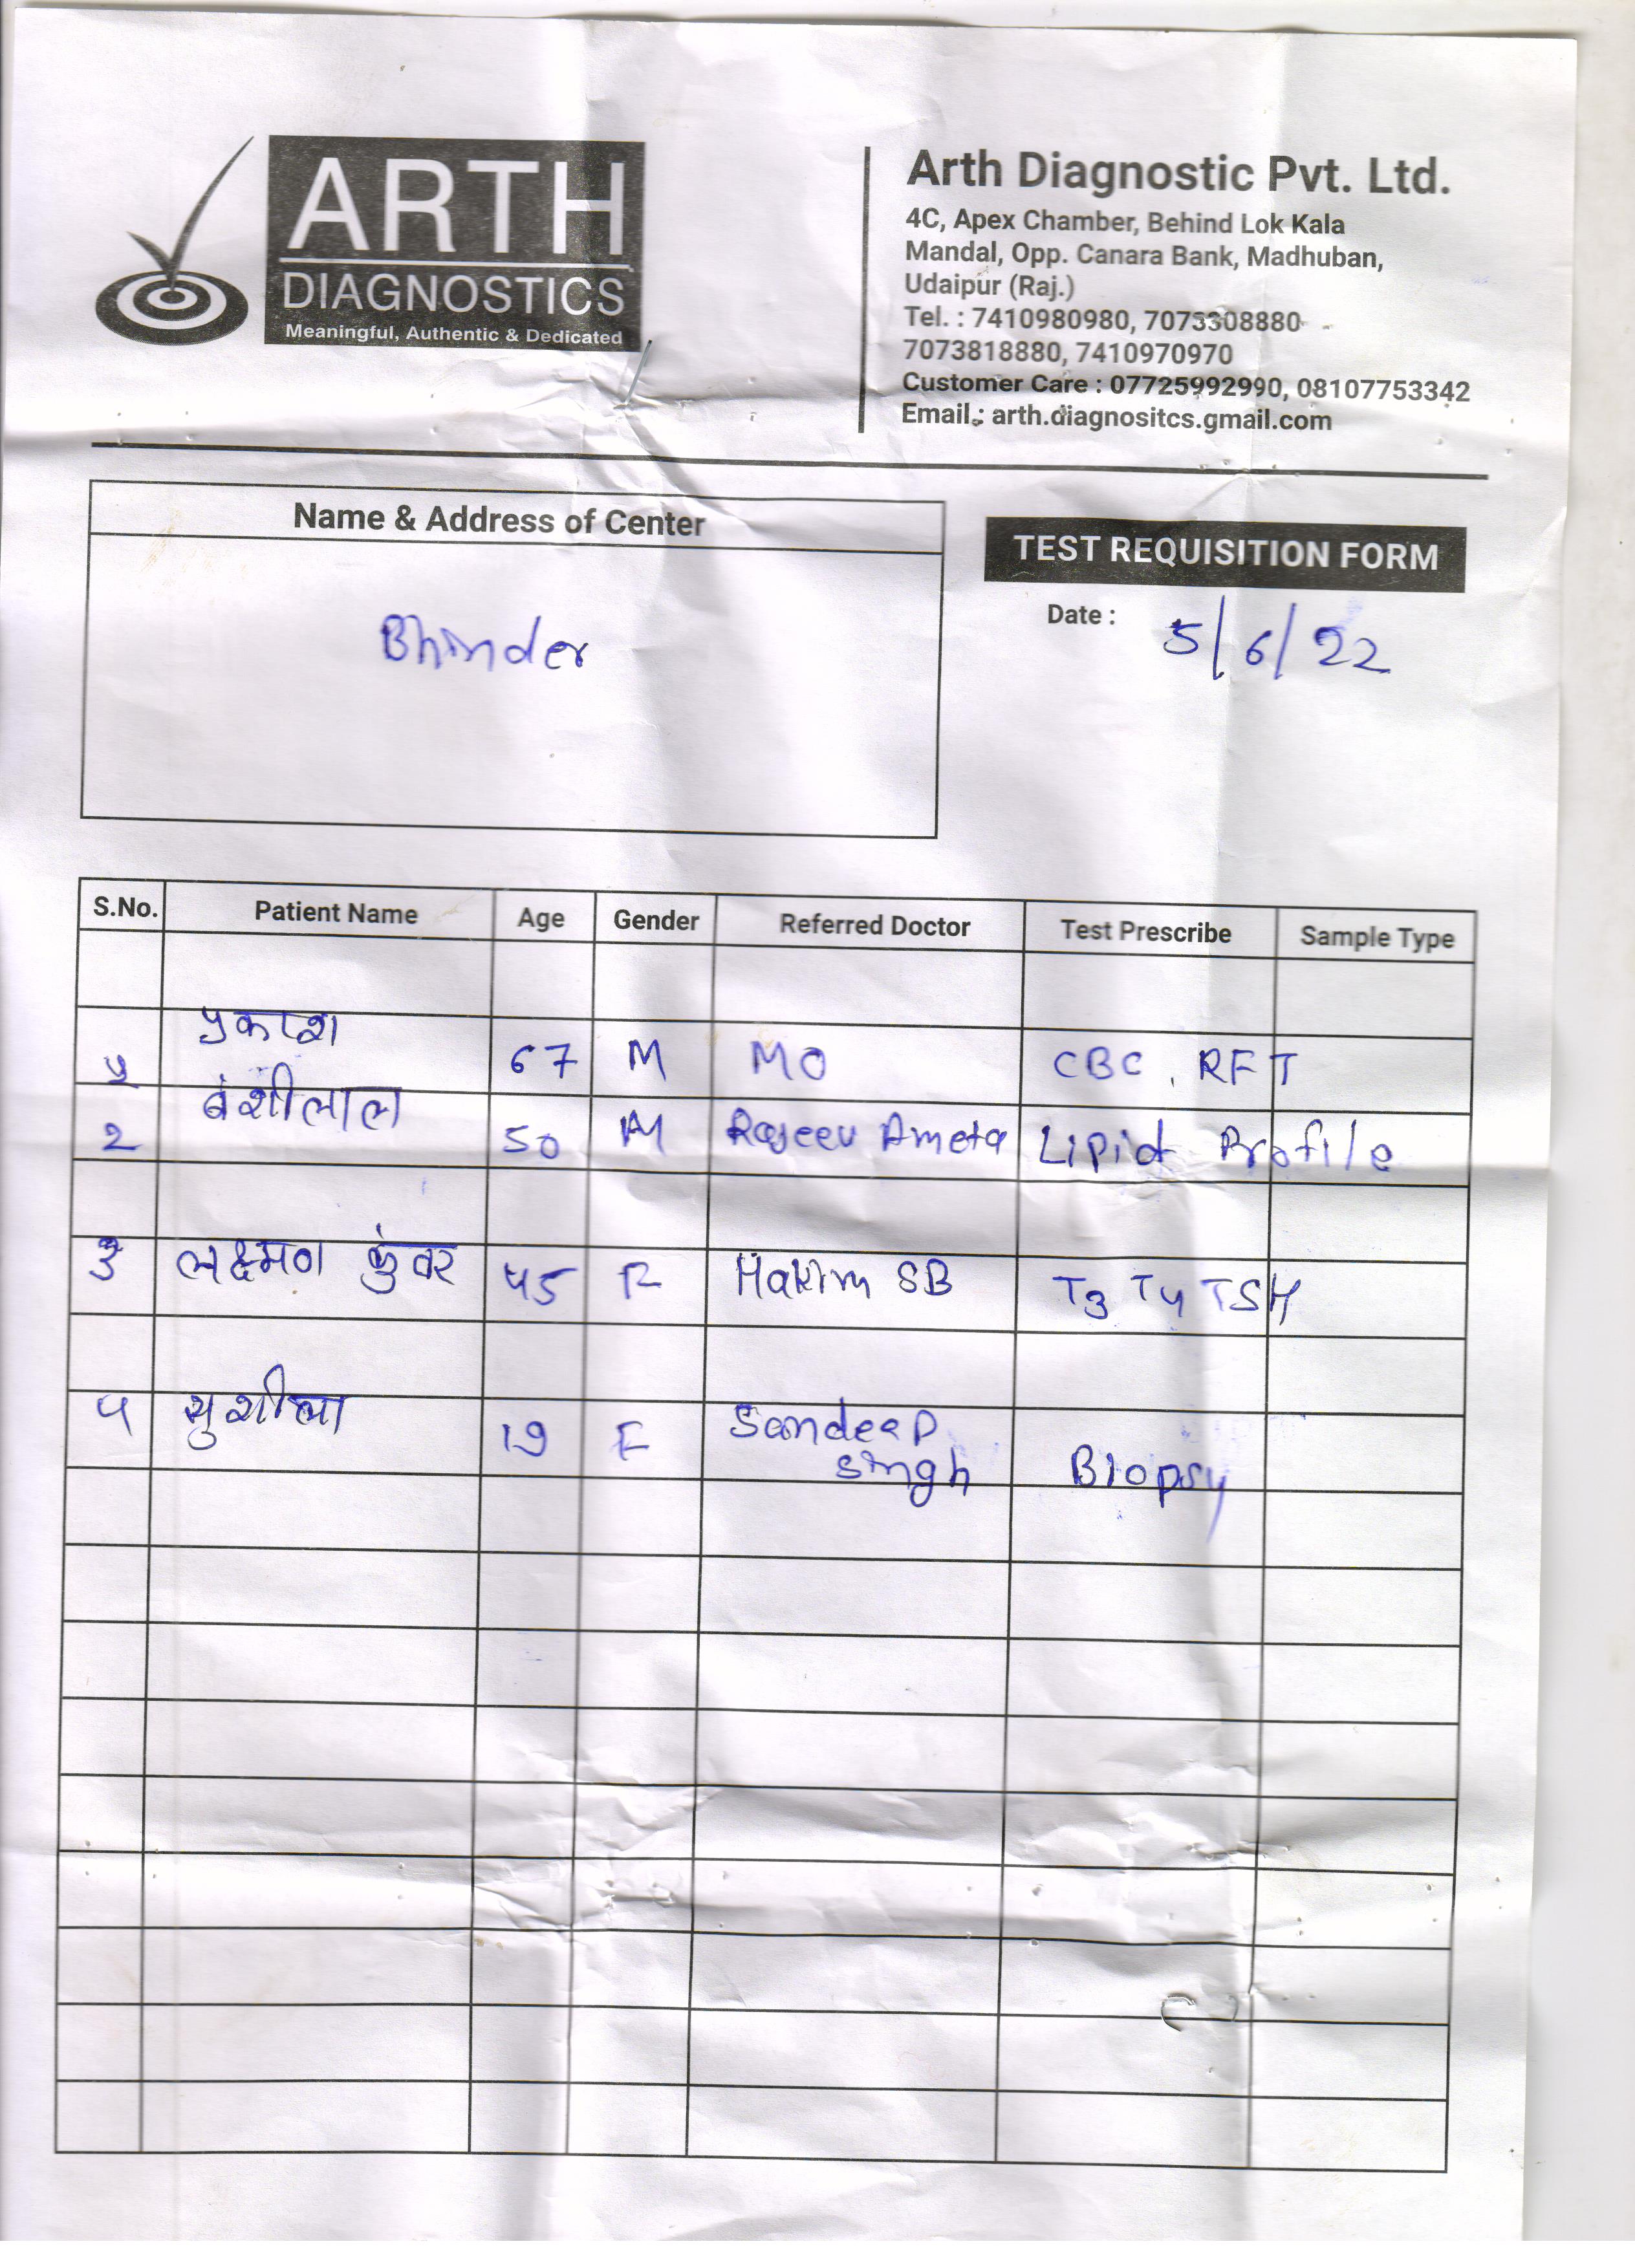 ARTH
DIAGNOSTICS
Meaningful, Authentic & Dedicated
Arth Diagnostic Pvt. Ltd.
4C, Apex Chamber, Behind Lok Kala
Mandal, Opp. Canara Bank, Madhuban,
Udaipur (Raj.)
Tel. : 7410980980, 7073308880
7073818880, 7410970970
Customer Care : 07725992990, 08107753342
Email.: arth.diagnositcs.gmail.com
Name & Address of Center
Bhinder
TEST REQUISITION FORM
Date : 5/6/22
S.No. Patient Name Age Gender Referred Doctor Test Prescribe Sample Type
प्रकाश 67 M MO CBC, RFT
2 बंशीलाल 50 M Rajeev Ameta Lipid Profile
3 लक्ष्मण कुंवर 45 F Hakim SB T3 T4 TSH
4 सुशीला 19 F Sandeep Singh Biopsy